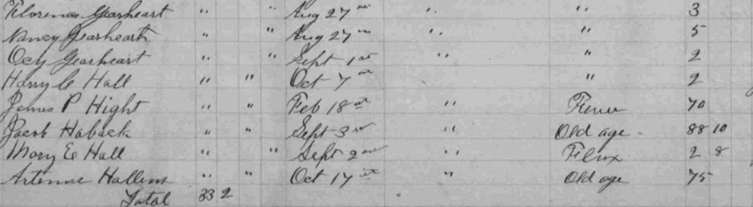 Florence Gearheart " " Aug 27th " " 3
Nancy Gearheart " " Aug 27th " " 5
Ocy Gearheart " " Sept 1st " " 2
Harry C Hall " " Oct 7th " 2
James P Hight " " Feb 18th " Fever 70
Jacob Haback " " Sept 3rd " Old age 88 10
Mary E Hall " " Sept 2nd " 2 8
Hallem " " Oct 17th " Old age 75
Total 33 2